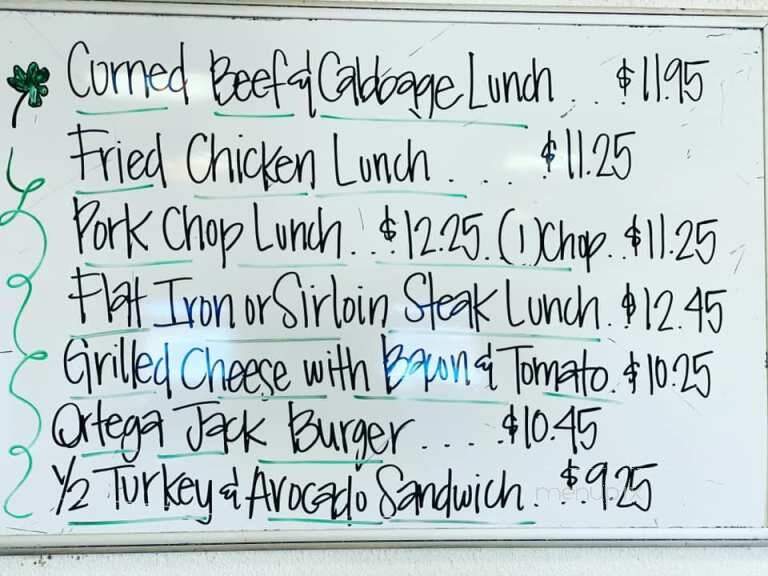 Corned Beef & Cabbage Lunch . . $11.95
Fried Chicken Lunch . . . $11.25
Pork Chop Lunch . . $12.25. (1) Chop. $11.25
Flat Iron or Sirloin Steak Lunch. $12.45
Grilled Cheese with Bacon & Tomato. $10.25
Ortega Jack Burger . . . . $10.45
1/2 Turkey & Avocado Sandwich. $9.25